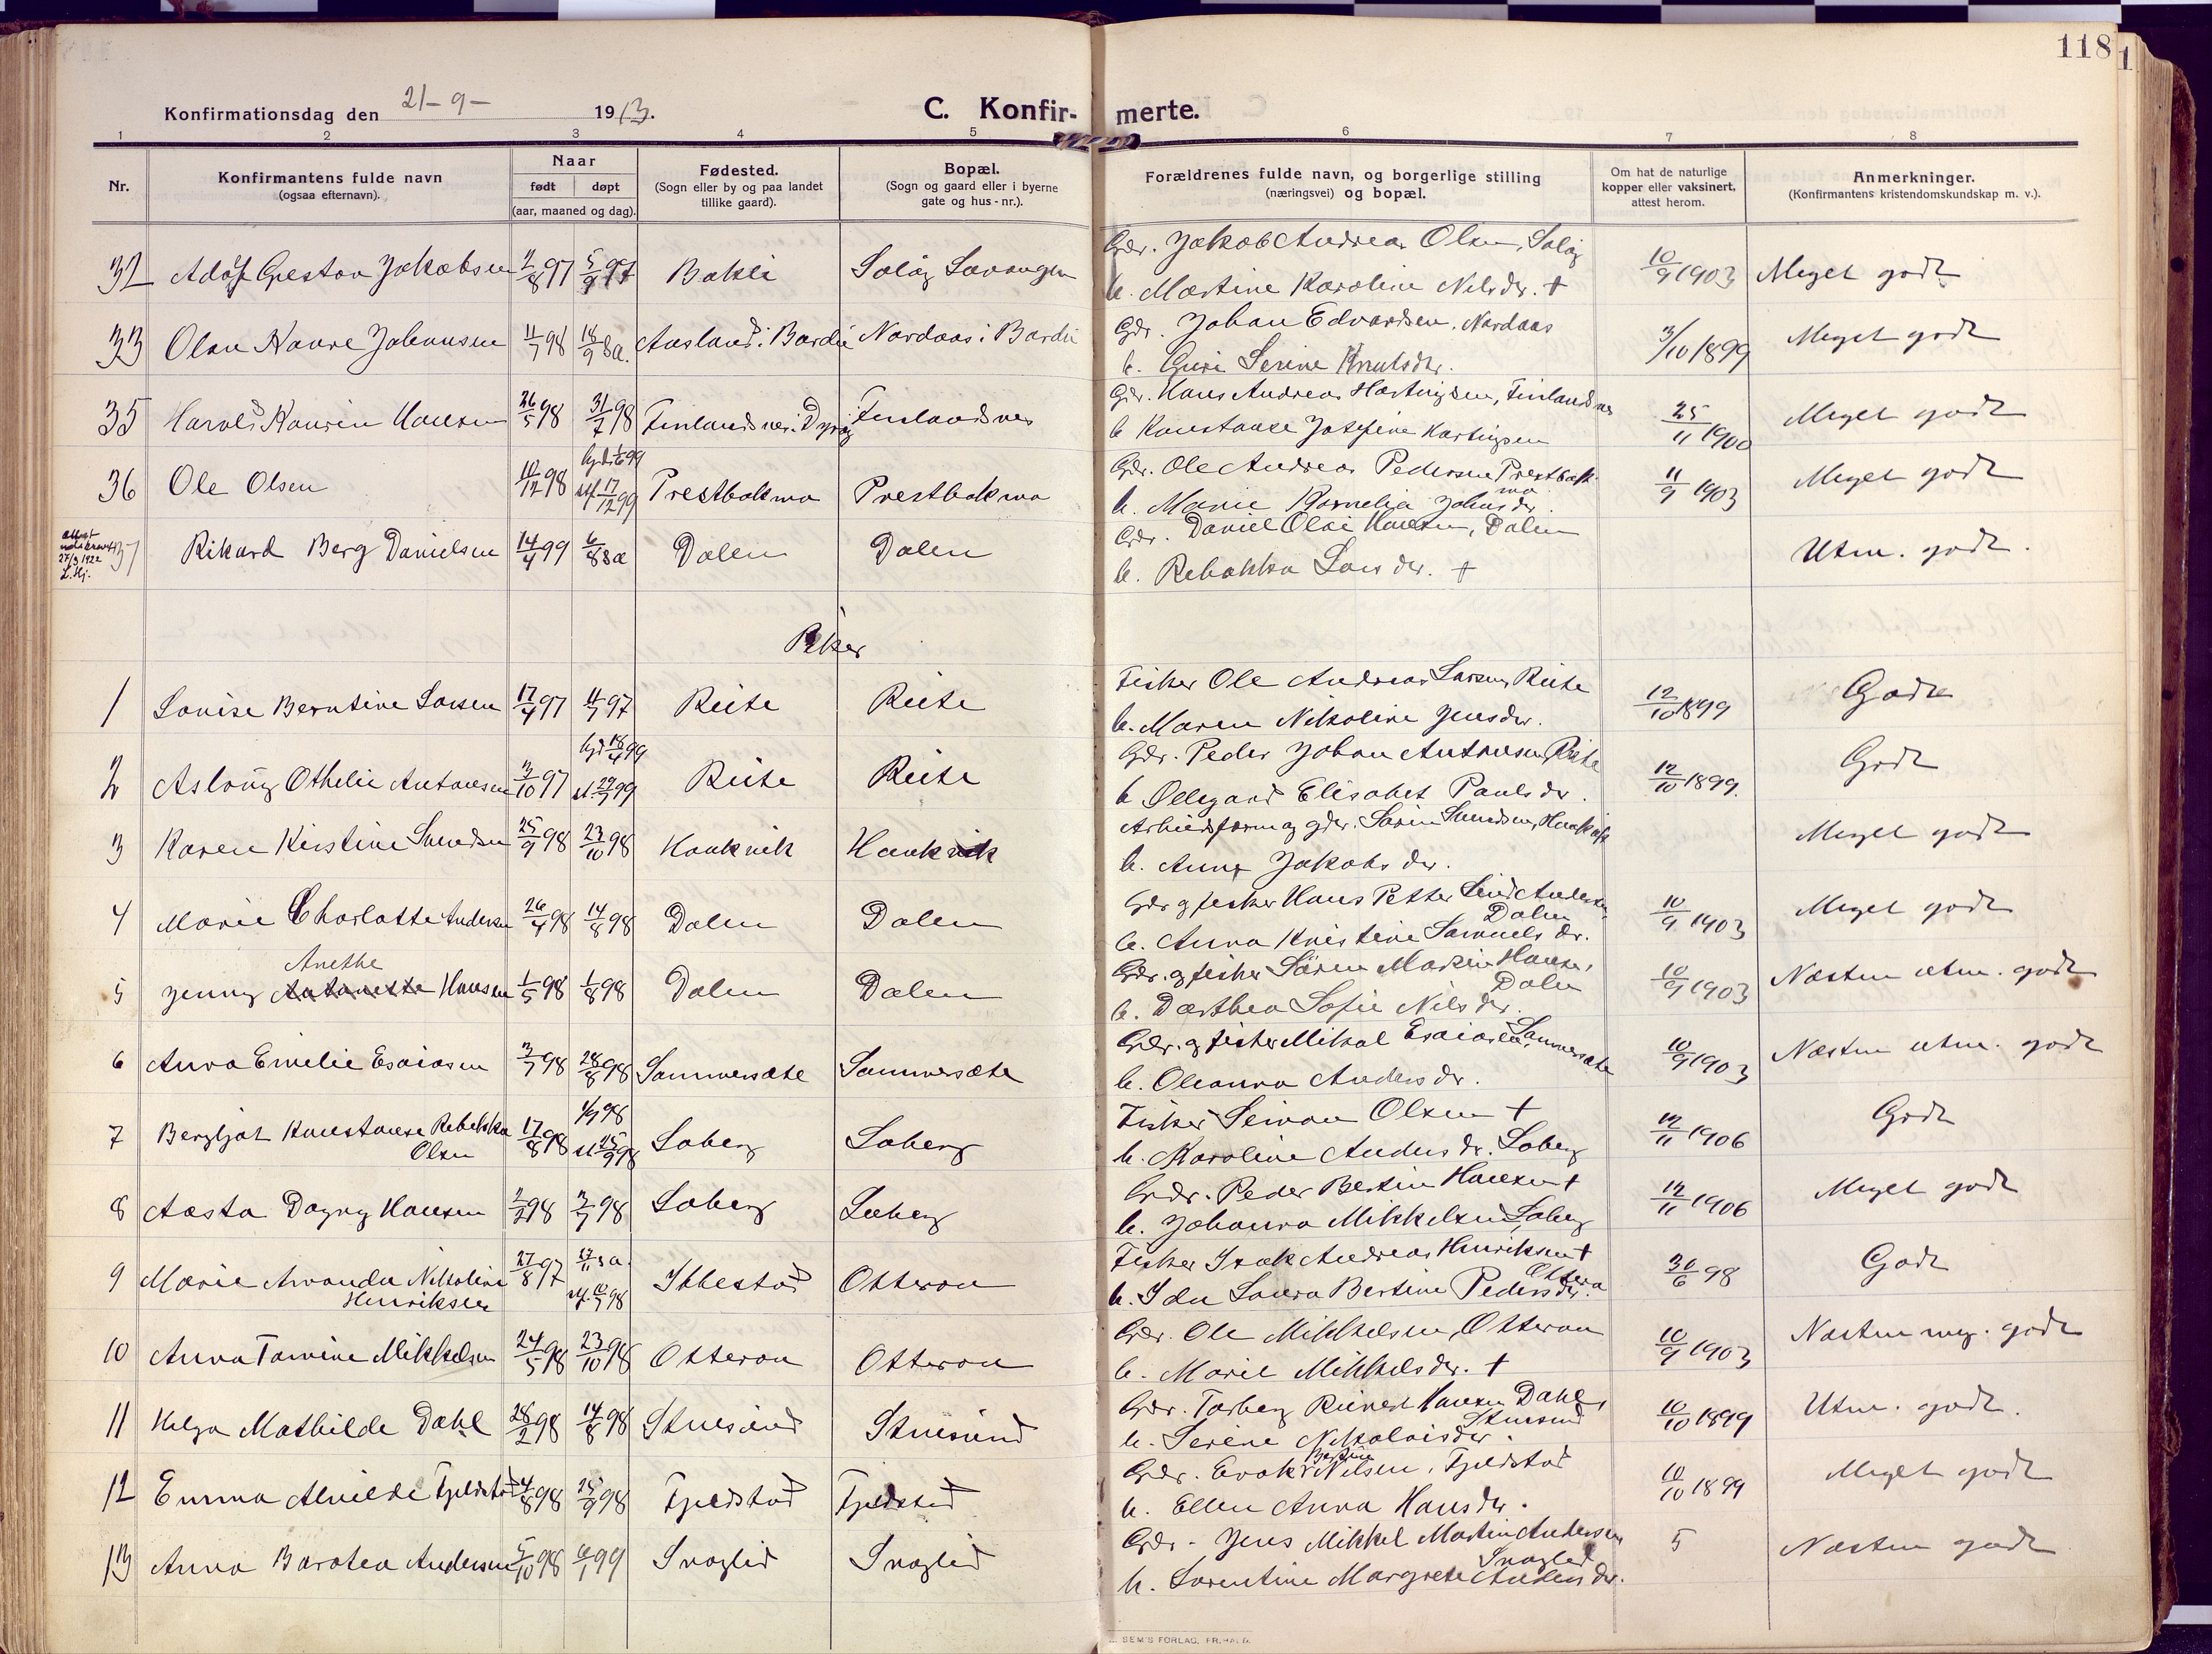 118
Konfirmationsdag den 21-9- 1913.
C. Konfir- merte.
1 2 3 4 5 6 7 8
Nr.
Konfirmantens fulde navn
(ogsaa efternavn).
Naar
født døpt
(aar, maaned og dag).
Fødested.
(Sogn eller by og paa landet
tillike gaard).
Bopæl.
(Sogn og gaard eller i byerne
gate og hus-nr.).
Forældrenes fulde navn, og borgerlige stilling
(næringsvei) og bopæl.
Om hat de naturlige
kopper eller vaksinert,
attest herom.
Anmerkninger.
(Konfirmantens kristendomskundskap m. v.).
Gdr. Jakob Andreas Olsen, Soløy
32 Adolf Gustav Jakobsen 2/8 97 5/9 97 Bakli Soløy Lavangen
h. Martine Karoline Nilsdr. + 10/9 1903 Meget godt
Gdr. Johan Edvardsen. Nordaas
33 Olav Haavre Johansen 11/7 98 18/9 s.a. Aasland i Bardu Nordaas i Bardu
h. Guri Serine Knutsdtr. 3/10 1899 Meget godt
Gdr. Hans Andreas Hartvigsen, Finlandsnes
35 Harald Kaurin Hansen 26/5 98 31/7 98 Finlandsnes i Dyrøy Finlandsnes
h Konstanse Josefine Hartvigsen 25/11 1900 Meget godt
Gdr. Ole Andreas Pedersen Prestbak-
mo
36 Ole Olsen 10/12 98 hjd 1/6 99 stf 17/12 99 Prestbakmo Prestbakmo
h. Marie Kornelia Johnsdr. 11/9 1903 Meget godt
attest
utskrevet
27/3 1922
L. Hj.
Gdr. Daniel Olai Hansen, Dalen
37 Rikard Berg Danielsen 14/4 99 6/8 s.a Dalen Dalen
h. Rebekka Larsdr. + Utm. godt.
Piker
Fisker Ole Andreas Larsen, Reite
1 Lovise Berntine Larsen 17/4 97 11/7 97 Reite Reite
h. Maren Nikoline Jensdr. 12/10 1899 Godt
Gdr. Peder Johan Antonsen, Reite
2 Aslaug Othelie Antonsen 3/10 97 hjd 18/4 99 st 29/7 99 Reite Reite
h Ollegard Elisabet Paulsdr. 12/10 1899. Godt
Arbeidsform. og gdr. Sørin Svendsen, Haukvik
3 Karen Kirstine Svendsen 25/9 98 23/10 98 Haukvik Haukvik
h. Anna Jakobsdr. Meget godt
Gdr og fisker Hans Petter Lund Andersen,
Dalen
4 Marie Charlotte Andersen 26/4 98 14/8 98 Dalen Dalen
h. Anna Kristine Samuelsdr. 10/9 1903 Meget godt
Gdr. og fisker Søren Martin Hansen,
Dalen
Anethe
5 Jenny Antonette Hansen 1/5 98 1/8 98 Dalen Dalen
h. Dorthea Sofie Nilsdr. 10/9 1903 Næsten utm. godt
Gdr. og fisker Mikal Esaiasen, Sommersæte
6 Anna Emelie Esaiasen 3/7 98 28/8 98 Sommersæte Sommersæte
h. Oleanna Andersdr. 10/9 1903 Næsten utm. godt
Fisker Seimon Olsen +
7 Bergljot Konstanse Rebekka 17/8 98 1/9 98 st 25/9 98 Løberg Løberg
Olsen
h. Karoline Andersdr. Løberg 12/11 1906 Godt
Gdr. Peder Bertin Hansen +
8 Aasta Dagny Hansen 2/2 98 3/7 98 Løberg Løberg
h. Johanna Mikkelsen, Løberg 12/11 1906 Meget godt
Fisker Isak Andreas Henriksen +
9 Marie Amanda Nikoline 27/8 97 27/11 s.a. stf. 10/7 98 Ibbestad Otteraa
Henriksen
h. Ida Laura Bertine Pedersdr. Otteraa 30/6 98 Godt
Gdr. Ole Mikkelsen, Otteraa
10 Anna Tomine Mikkelsen 24/5 98 23/10 98 Otteraa Otteraa
h. Marit Mikkelsdr. + 10/9 1903 Næsten meg. godt
Gdr. Torberg Reinert Hansen Dahl,
Stuesund
11 Helga Mathilde Dahl 28/2 98 14/8 98 Stuesund Stuesund
h. Serine Nikolaisdr. 10/10 1899 Utm. godt.
Gdr. Enok Bertin Nilsen, Fjeldstad
12 Emma Alvilde Fjeldstad 4/8 98 25/9 98 Fjeldstad Fjeldstad
h. Ellen Anna Hansdr. 10/10 1899 Meget godt
Gdr. Jens Mikkel Martin Andersen
Snoglid
13 Anna Barolea Andersen 5/10 98 6/1 99 Snoglid Snoglid
h. Lorentine Margrete Andersdr. 5 Næsten godt
SEM'S FORLAG, FR.HALD.